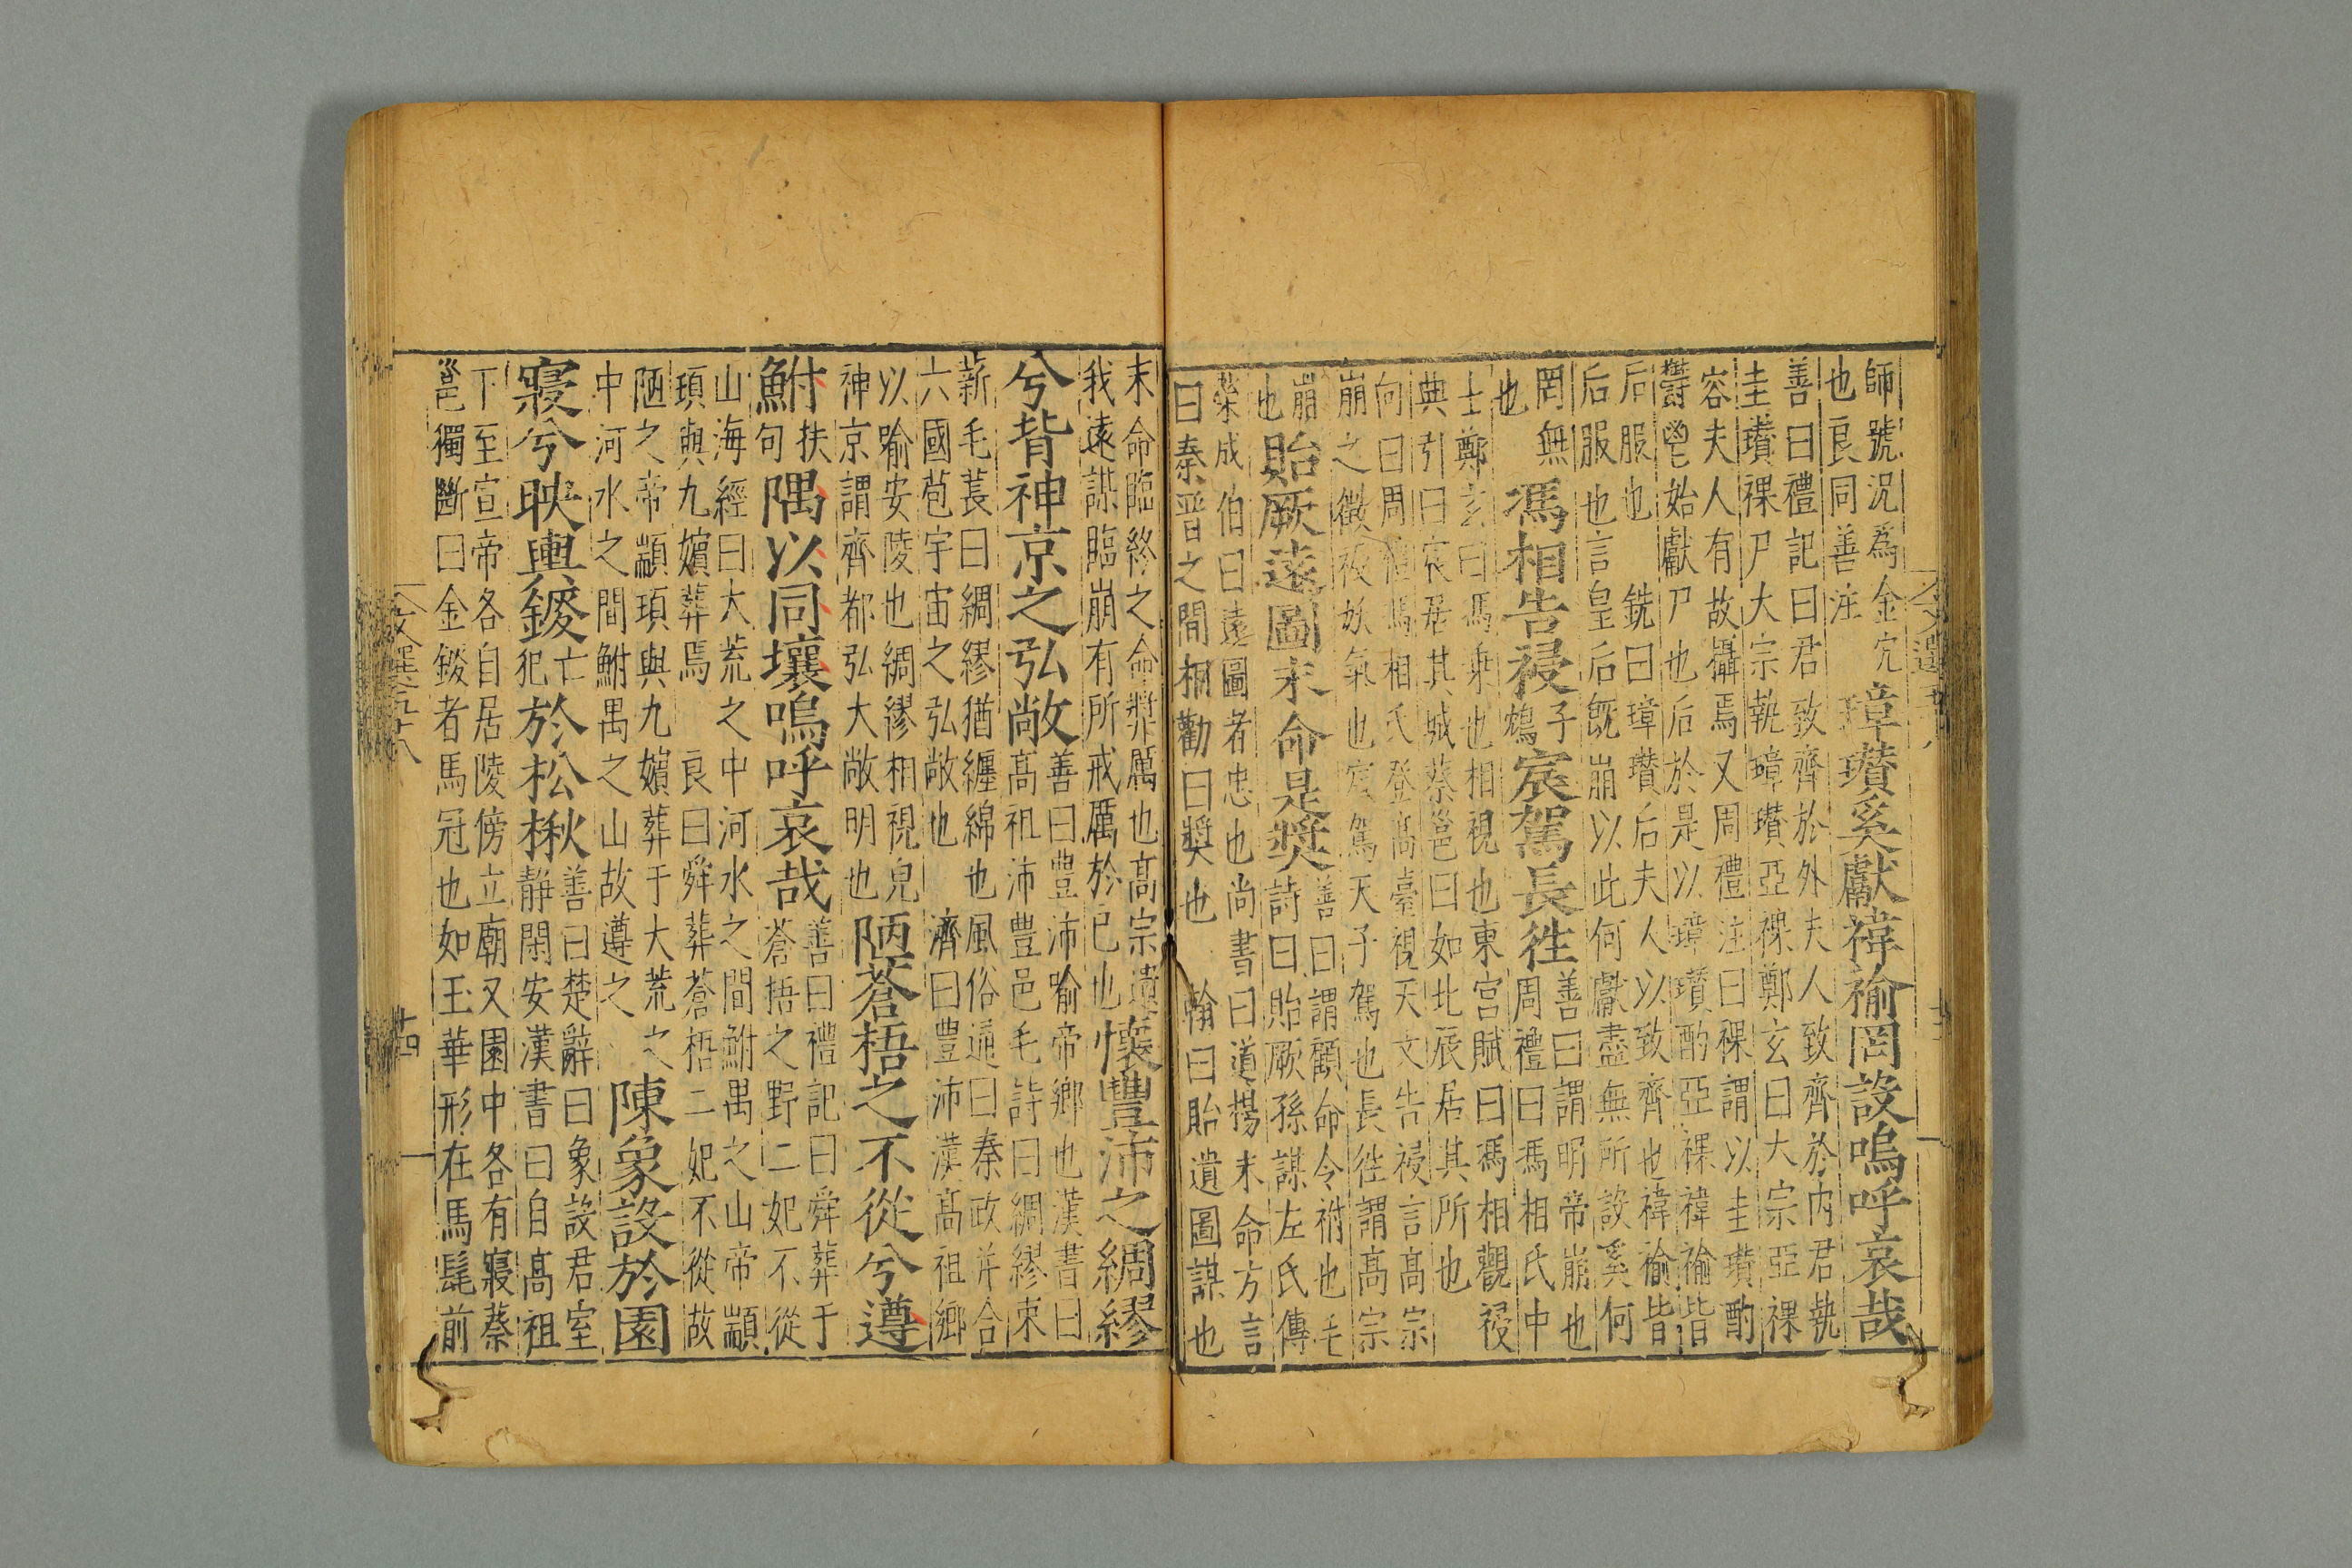 師號況爲金宂
也良同善注
璋瓚奚獻褘褕罔設嗚呼哀哉
善曰禮記曰君致齊於外夫人致齊於内君執
圭瓚祼尸大宗執璋瓚亞祼鄭玄曰大宗亞祼
容夫人有故攝焉又周禮注曰祼謂以圭瓚酌
鬱鬯始獻尸也后於是以璋瓚酌亞祼褘褕皆
后服也 銑曰璋瓚后夫人以致齊也褘褕皆
后服也言皇后旣崩以此何獻盡無所設奚何
罔無
也
馮相告祲子鴆宸駕長徃
善曰謂明帝崩也
周禮曰馮相氏中
士鄭玄曰馮乘也相視也東宮賦曰馮相觀祲
典引曰宸居其域蔡邕曰如北辰居其所也
向曰周禮馮相氏登髙臺視天文告祲言髙宗
崩之徵祲妖氣也宸駕天子駕也長徃謂髙宗
崩
也
貽厥遠圖末命是奬
善曰謂顧命令祔也毛
詩曰貽厥孫謀左氏傳
榮成伯曰遠圖者忠也尚書曰道楊末命方言
曰秦晉之間相勸曰奬也 翰曰貽遺圖謀也
末命臨終之命奬厲也髙宗遺
我遠謀臨崩有所戒厲於已也
懷豐沛之綢繆
兮背神京之弘敞
善曰豐沛喻帝鄉也漢書曰
髙祖沛豐邑毛詩曰綢繆束
薪毛萇曰綢繆猶纏綿也風俗通曰秦政并合
六國苞宇宙之弘敞也 濟曰豐沛漢髙祖鄉
以喻安陵也綢繆相視皃
神京謂齊都弘大敞明也
陋蒼梧之不從兮遵
鮒扶句隅以同壤嗚呼哀哉
善曰禮記曰舜葬于
蒼梧之野二妃不從
山海經曰大荒之中河水之間鮒禺之山帝顓
頊與九嬪葬焉 良曰舜葬蒼梧二妃不從故
陋之帝顓頊與九嬪葬于大荒之
中河水之間鮒禺之山故遵之
陳象設於園
寢兮映輿鍐亡犯於松楸
善曰楚辭曰象設君室
靜閑安漢書曰自髙祖
下至宣帝各自居陵傍立廟又園中各有寢蔡
邕獨斷曰金鍐者馬冠也如玉華形在馬髦前
文選五十八
十四